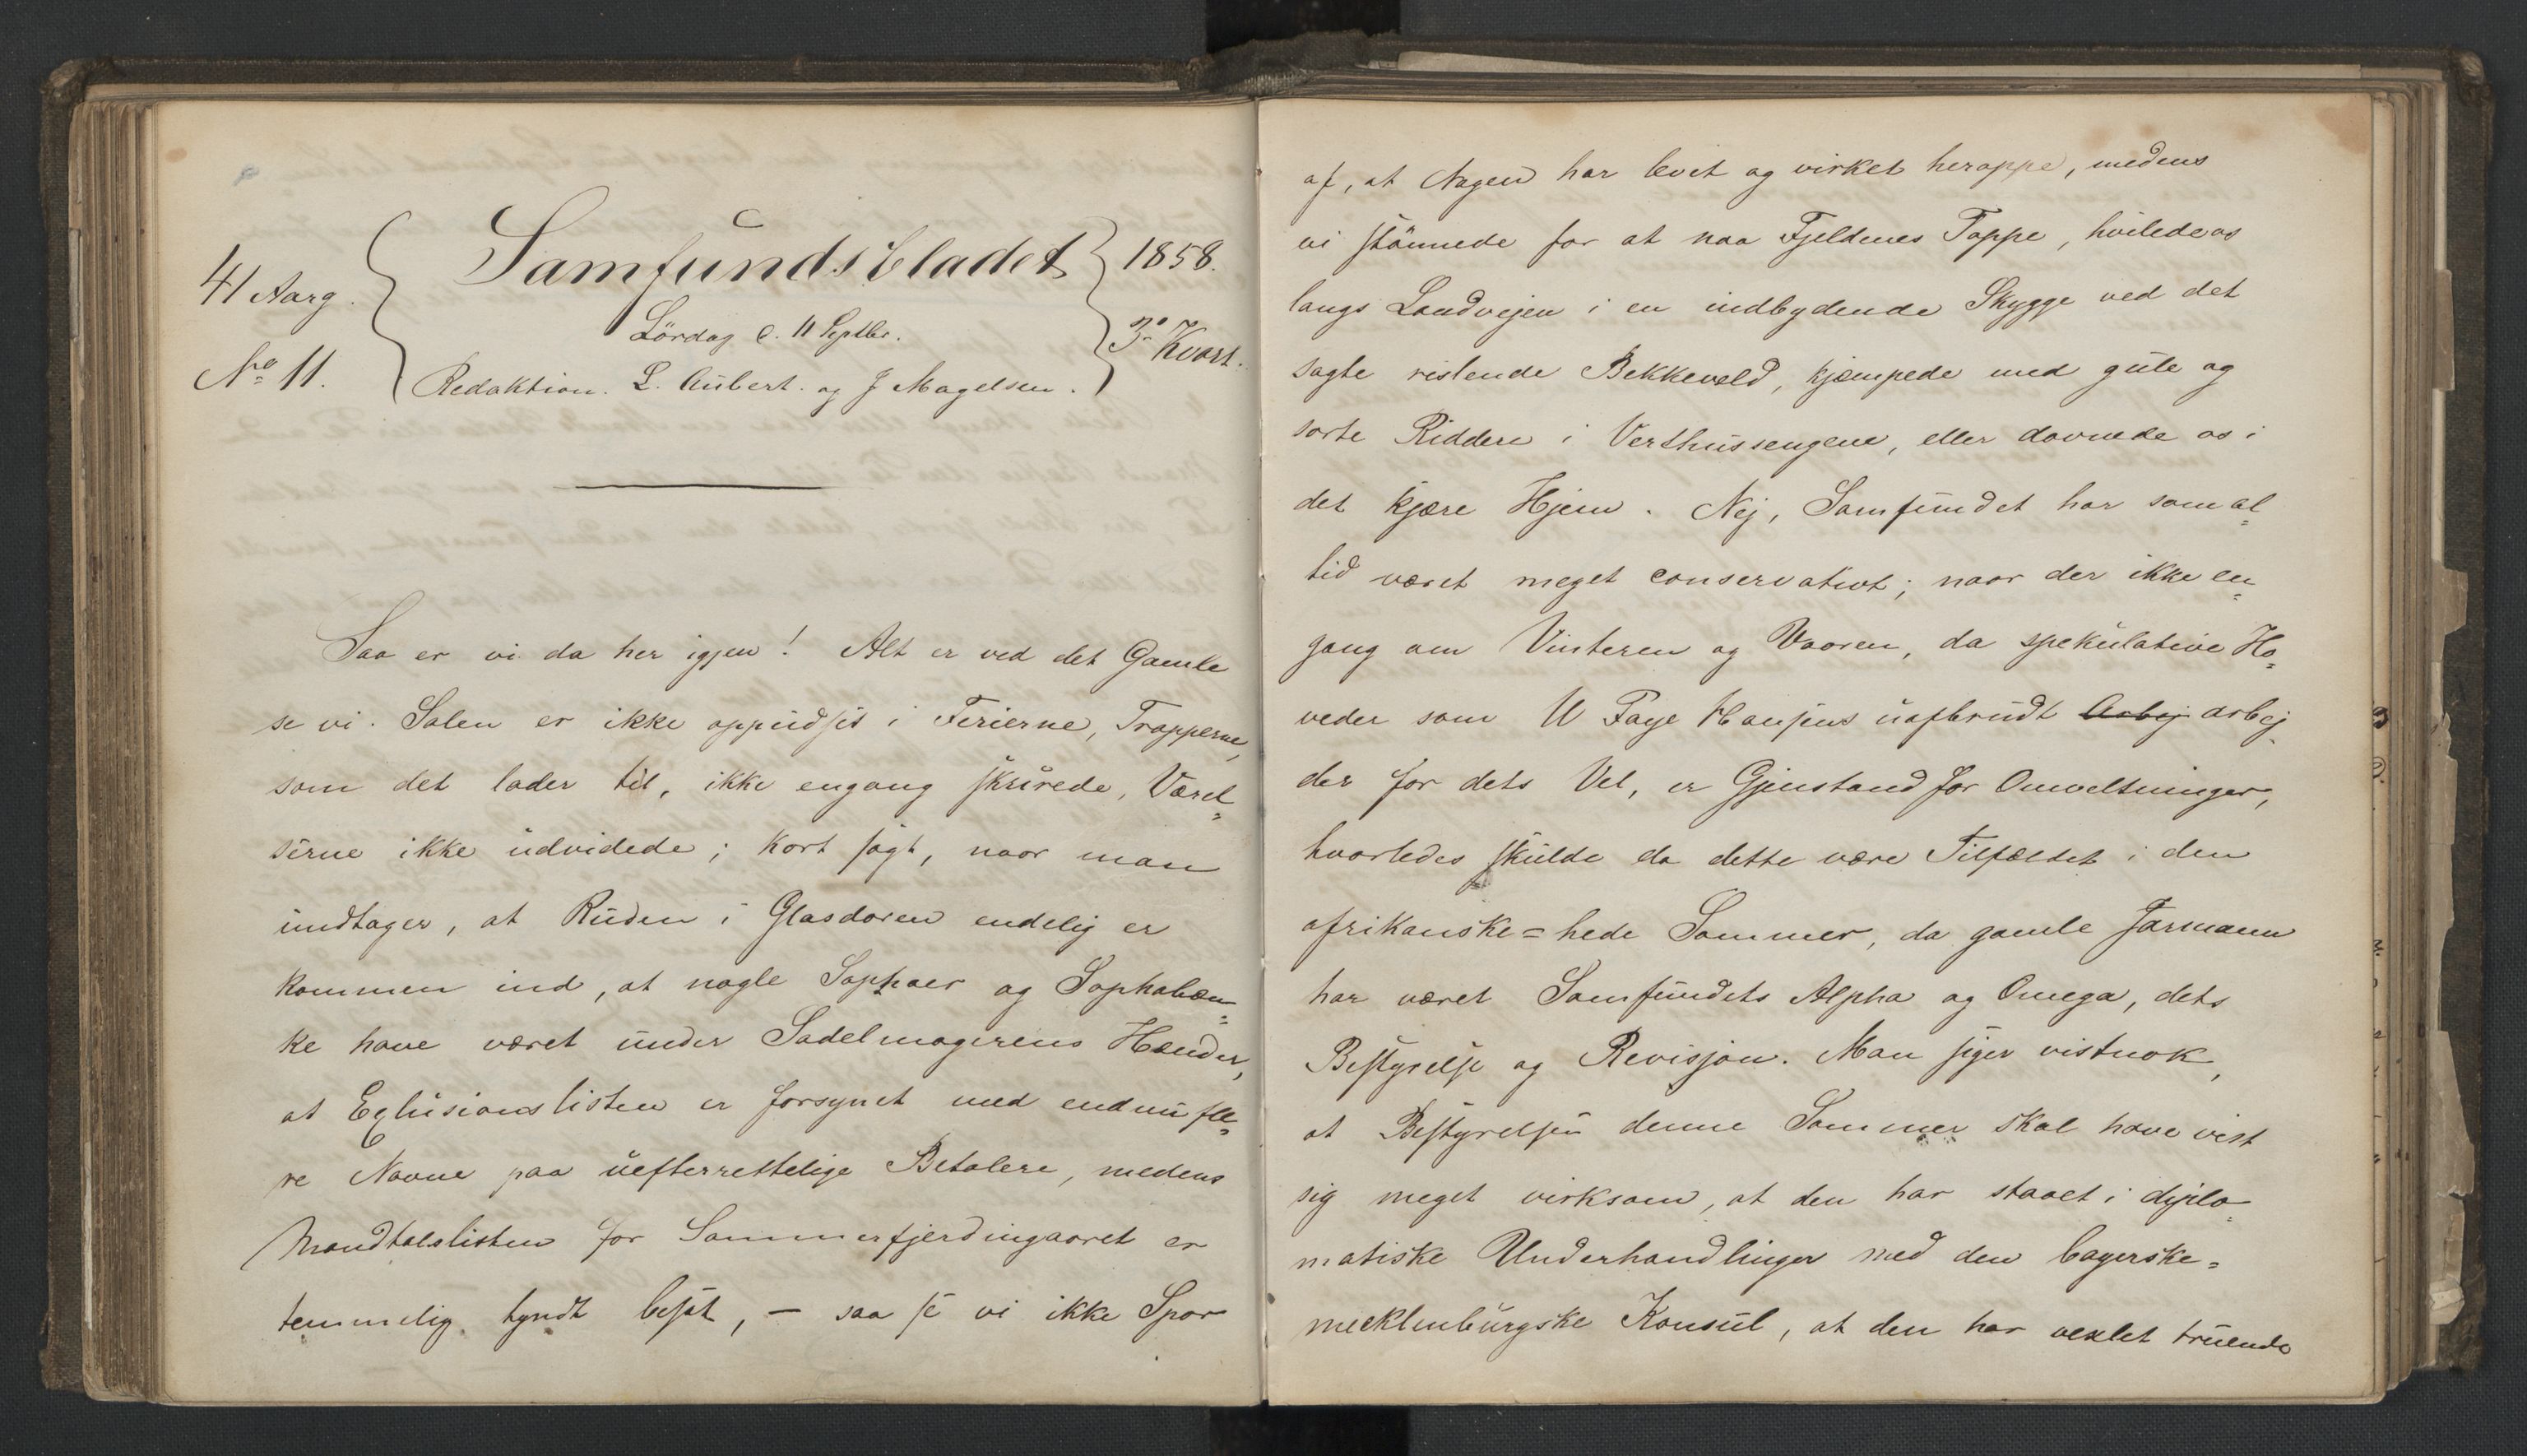 41 Aarg.
Samfundsbladet
1858.
Lördag d. 11 Septbr.
3º Kvart.
Nº 11.
Redaktion. L. Aubert. og J Magelsen.
Saa er vi da her igjen! Alt er ved det Gamle
se vi. Salen er ikke oppudset i Ferierne, Trapperne,
som det lader til, ikke engang skurede, Værel-
serne ikke udvidede; kort sagt, naar man
undtager, at Ruden i Glasdoren endelig er
kommen ind, at nogle Sophaer og Sophabæn-
ke have været under Sadelmagerens Hænder,
at Exlusionslisten er forsynet med endnu fle-
re Navne paa uefterrettelige Betalere, medens
Mandtalslisten for Sommerfjerdingaaret er
temmelig tyndt besat, - saa se vi ikke Spor
af, at Nogen har levet og virket heroppe, medens
vi stönnede for at naa Fjeldenes Toppe, hvilede os
langs Landvejen i en indbydende Skygge ved det
sagte rislende Bekkeveld, kjæmpede med gule og
sorte Riddere i Verthussengene, eller dovnede os i
det kjære Hjem. Nej, Samfundet har som al-
tid været meget conservativt; naar der ikke en-
gang om Vinteren og Vaaren, da spekulative Ho-
veder som U Faye Hansens uafbrudt Arbej arbej-
der for dets Vel, er Gjenstand for Omveltninger,
hvorledes skulde da dette være Tilfældet i den
afrikanske-hede Sommer, da gamle Jarmann
har været Samfundets Alpha og Omega, dets
Bestyrelse og Revisjon. Man siger vistnok,
at Bestyrelsen denne Sommer skal have vist
sig meget virksom, at den har staaet i diplo-
matiske Underhandlinger med den bayerske-
mecklenburgske Konsul, at den har vexlet truende